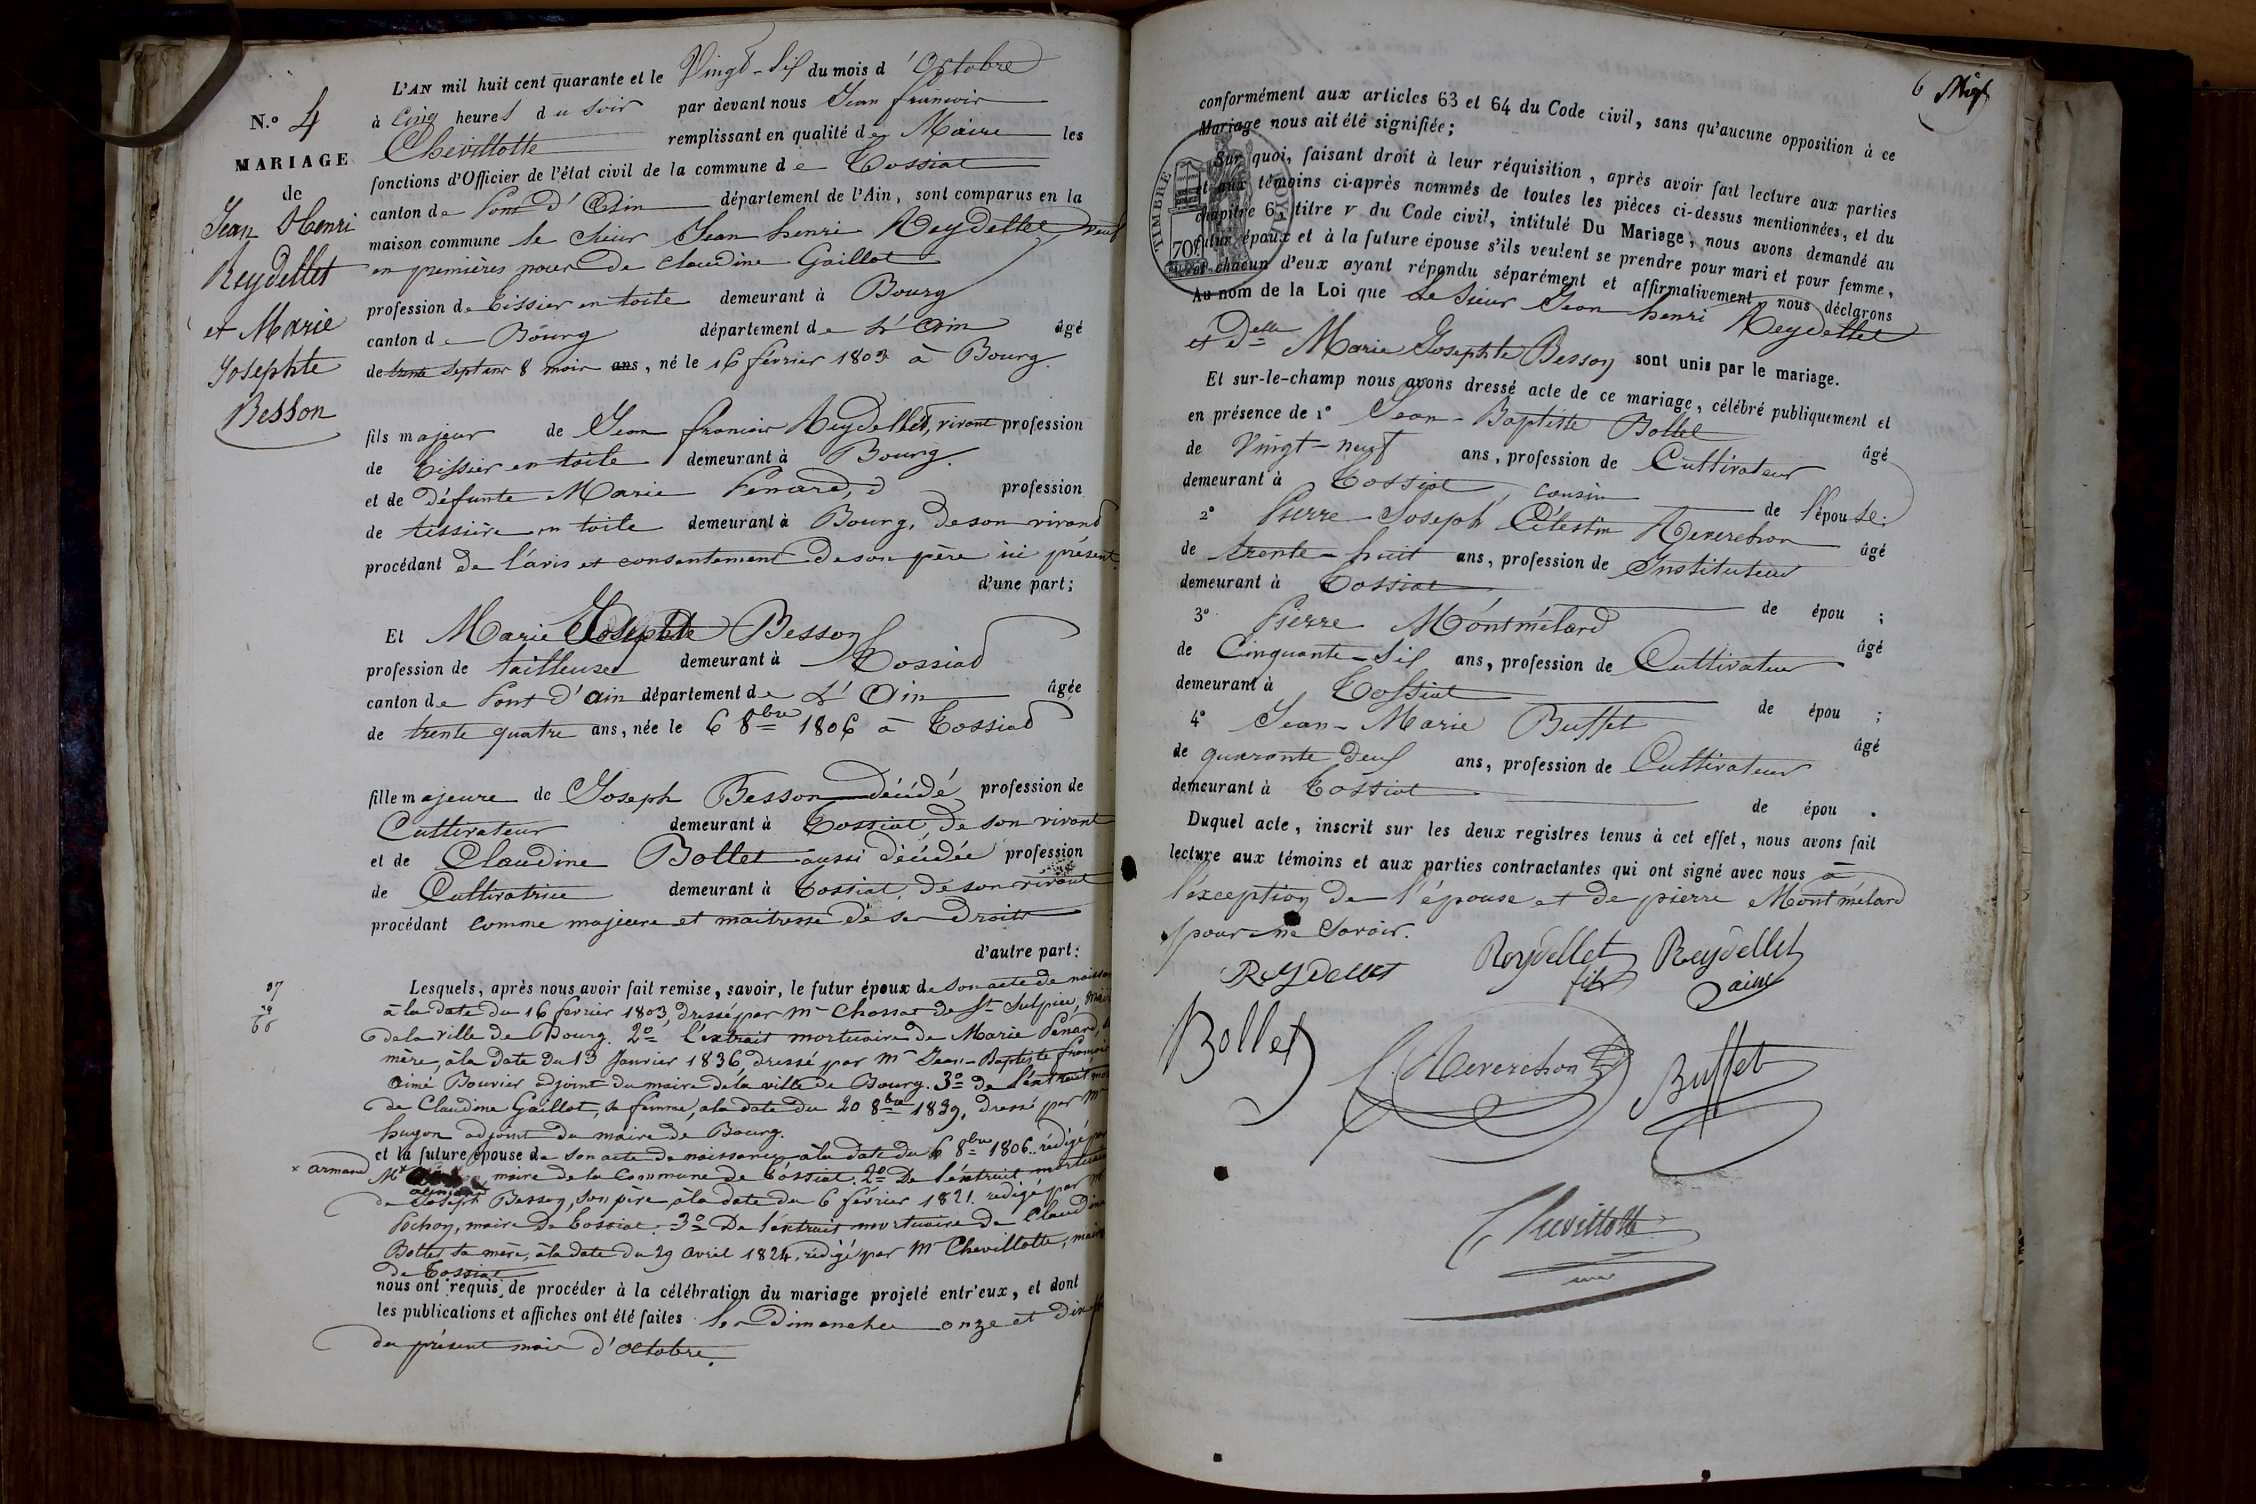 N.º 4
MARIAGE
de
Jean Henri
Reydellet
et Marie
Josephte
Besson
L'AN mil huit cent quarante et le Vingt-Six du mois d'Octobre
à Cinq heures du soir par devant nous Jean françois
Chevillotte remplissant en qualité de Maire les
fonctions d'Officier de l'état civil de la commune de Tossiat
canton de Pont d'Ain département de l'Ain, sont comparus en la
maison commune le Sieur Jean henri Reydellet veuf
en premières noces de Claudine Gaillot
profession de tissier en toile demeurant à Bourg
canton de Bourg département de l'Ain âgé
de trente sept ans 8 mois ans, né le 16 février 1803 à Bourg.
fils majeur de Jean françois Reydellet, vivant profession
de tissier en toile demeurant à Bourg.
et de défunte Marie Penard, d profession
de tissière en toile demeurant à Bourg, de son vivant
procédant de l'avis et consentement de son père ici présent
d'une part;
Et Marie Josephte Besson
profession de tailleuse demeurant à Tossiat
canton de Pont d'ain département de L'Ain âgée
de trente quatre ans, née le 6 8bre 1806 à Tossiat
fille majeure de Joseph Besson décédé profession de
Cultivateur demeurant à Tossiat, de son vivant
et de Claudine Bollet aussi décédée profession
de Cultivatrice demeurant à Tossiat, de son vivant
procédant comme majeure et maitresse de ses droits
d'autre part:
Lesquels, après nous avoir fait remise, savoir, le futur époux de son acte de naissance
à la date du 16 fevrier 1803, dressé par Mr Chossat de St Sulpice, Maire
de la ville de Bourg. 2º l'extrait mortuaire de Marie Penard, sa
mère, à la date du 13 Janvier 1836, dressé par Mr Jean-Baptiste françois
Aimé Bouvier adjoint du maire de la ville de Bourg. 3º de l'extrait mor
de Claudine Gaillot, sa femme, à la date du 20 8bre 1839, dressé par Mr
hugon adjoint du maire de Bourg.
et la future épouse de son acte de naissance à la date du 6 8bre 1806. rédigé par
x armand Mr maire de la Commune de Tossiat. 2º De l'extrait mortuaire
de Joseph Besson, son père, à la date du 6 février 1821. redigé par Mr
Pochon, maire de Tossiat. 3º De l'extrait mortuaire de Claudine
Bollet sa mère, à la date du 29 avril 1824, rédigé par Mr Chevillotte, maire
de Tossiat
nous ont requis de procéder à la célébration du mariage projeté entr'eux, et dont
les publications et affiches ont été faites les Dimanches onze et dix
du présent mois d'octobre.
6
conformément aux articles 63 et 64 du Code civil, sans qu'aucune opposition à ce
Mariage nous ait été signifiée;
Sur quoi, faisant droit à leur réquisition, après avoir fait lecture aux parties
et aux témoins ci-après nommés de toutes les pièces ci-dessus mentionnées, et du
chapitre 6, titre v du Code civil, intitulé Du Mariage, nous avons demandé au
futur époux et à la future épouse s'ils veulent se prendre pour mari et pour femme,
et chacun d'eux ayant répondu séparément et affirmativement, nous déclarons
Au nom de la Loi que Le Sieur Jean henri Reydellet
et Delle Marie Josephte Besson sont unis par le mariage.
Et sur-le-champ nous avons dressé acte de ce mariage, célébré publiquement et
en présence de 1º Jean-Baptiste Bollet âgé
de Vingt-neuf ans, profession de Cultivateur
demeurant à Tossiat cousin de l'épouse.
2º Pierre Joseph Célestin Reverchon âgé
de trente-huit ans, profession de Instituteur
demeurant à Tossiat de épou ;
3º Pierre Montmélard âgé
de Cinquante-Six ans, profession de Cultivateur
demeurant à Tossiat de épou ;
4º Jean-Marie Buffet âgé
de quarante deux ans, profession de Cultivateur
demeurant à Tossiat de épou .
Duquel acte, inscrit sur les deux registres tenus à cet effet, nous avons fait
lecture aux témoins et aux parties contractantes qui ont signé avec nous à
l'exception de l'épouse et de pierre Montmélard
pour ne savoir.
Reydellet Reydellet fils Reydellet ainé
Bollet Reverchon Buffet
Chevillotte
TIMBRE ROYAL
70c